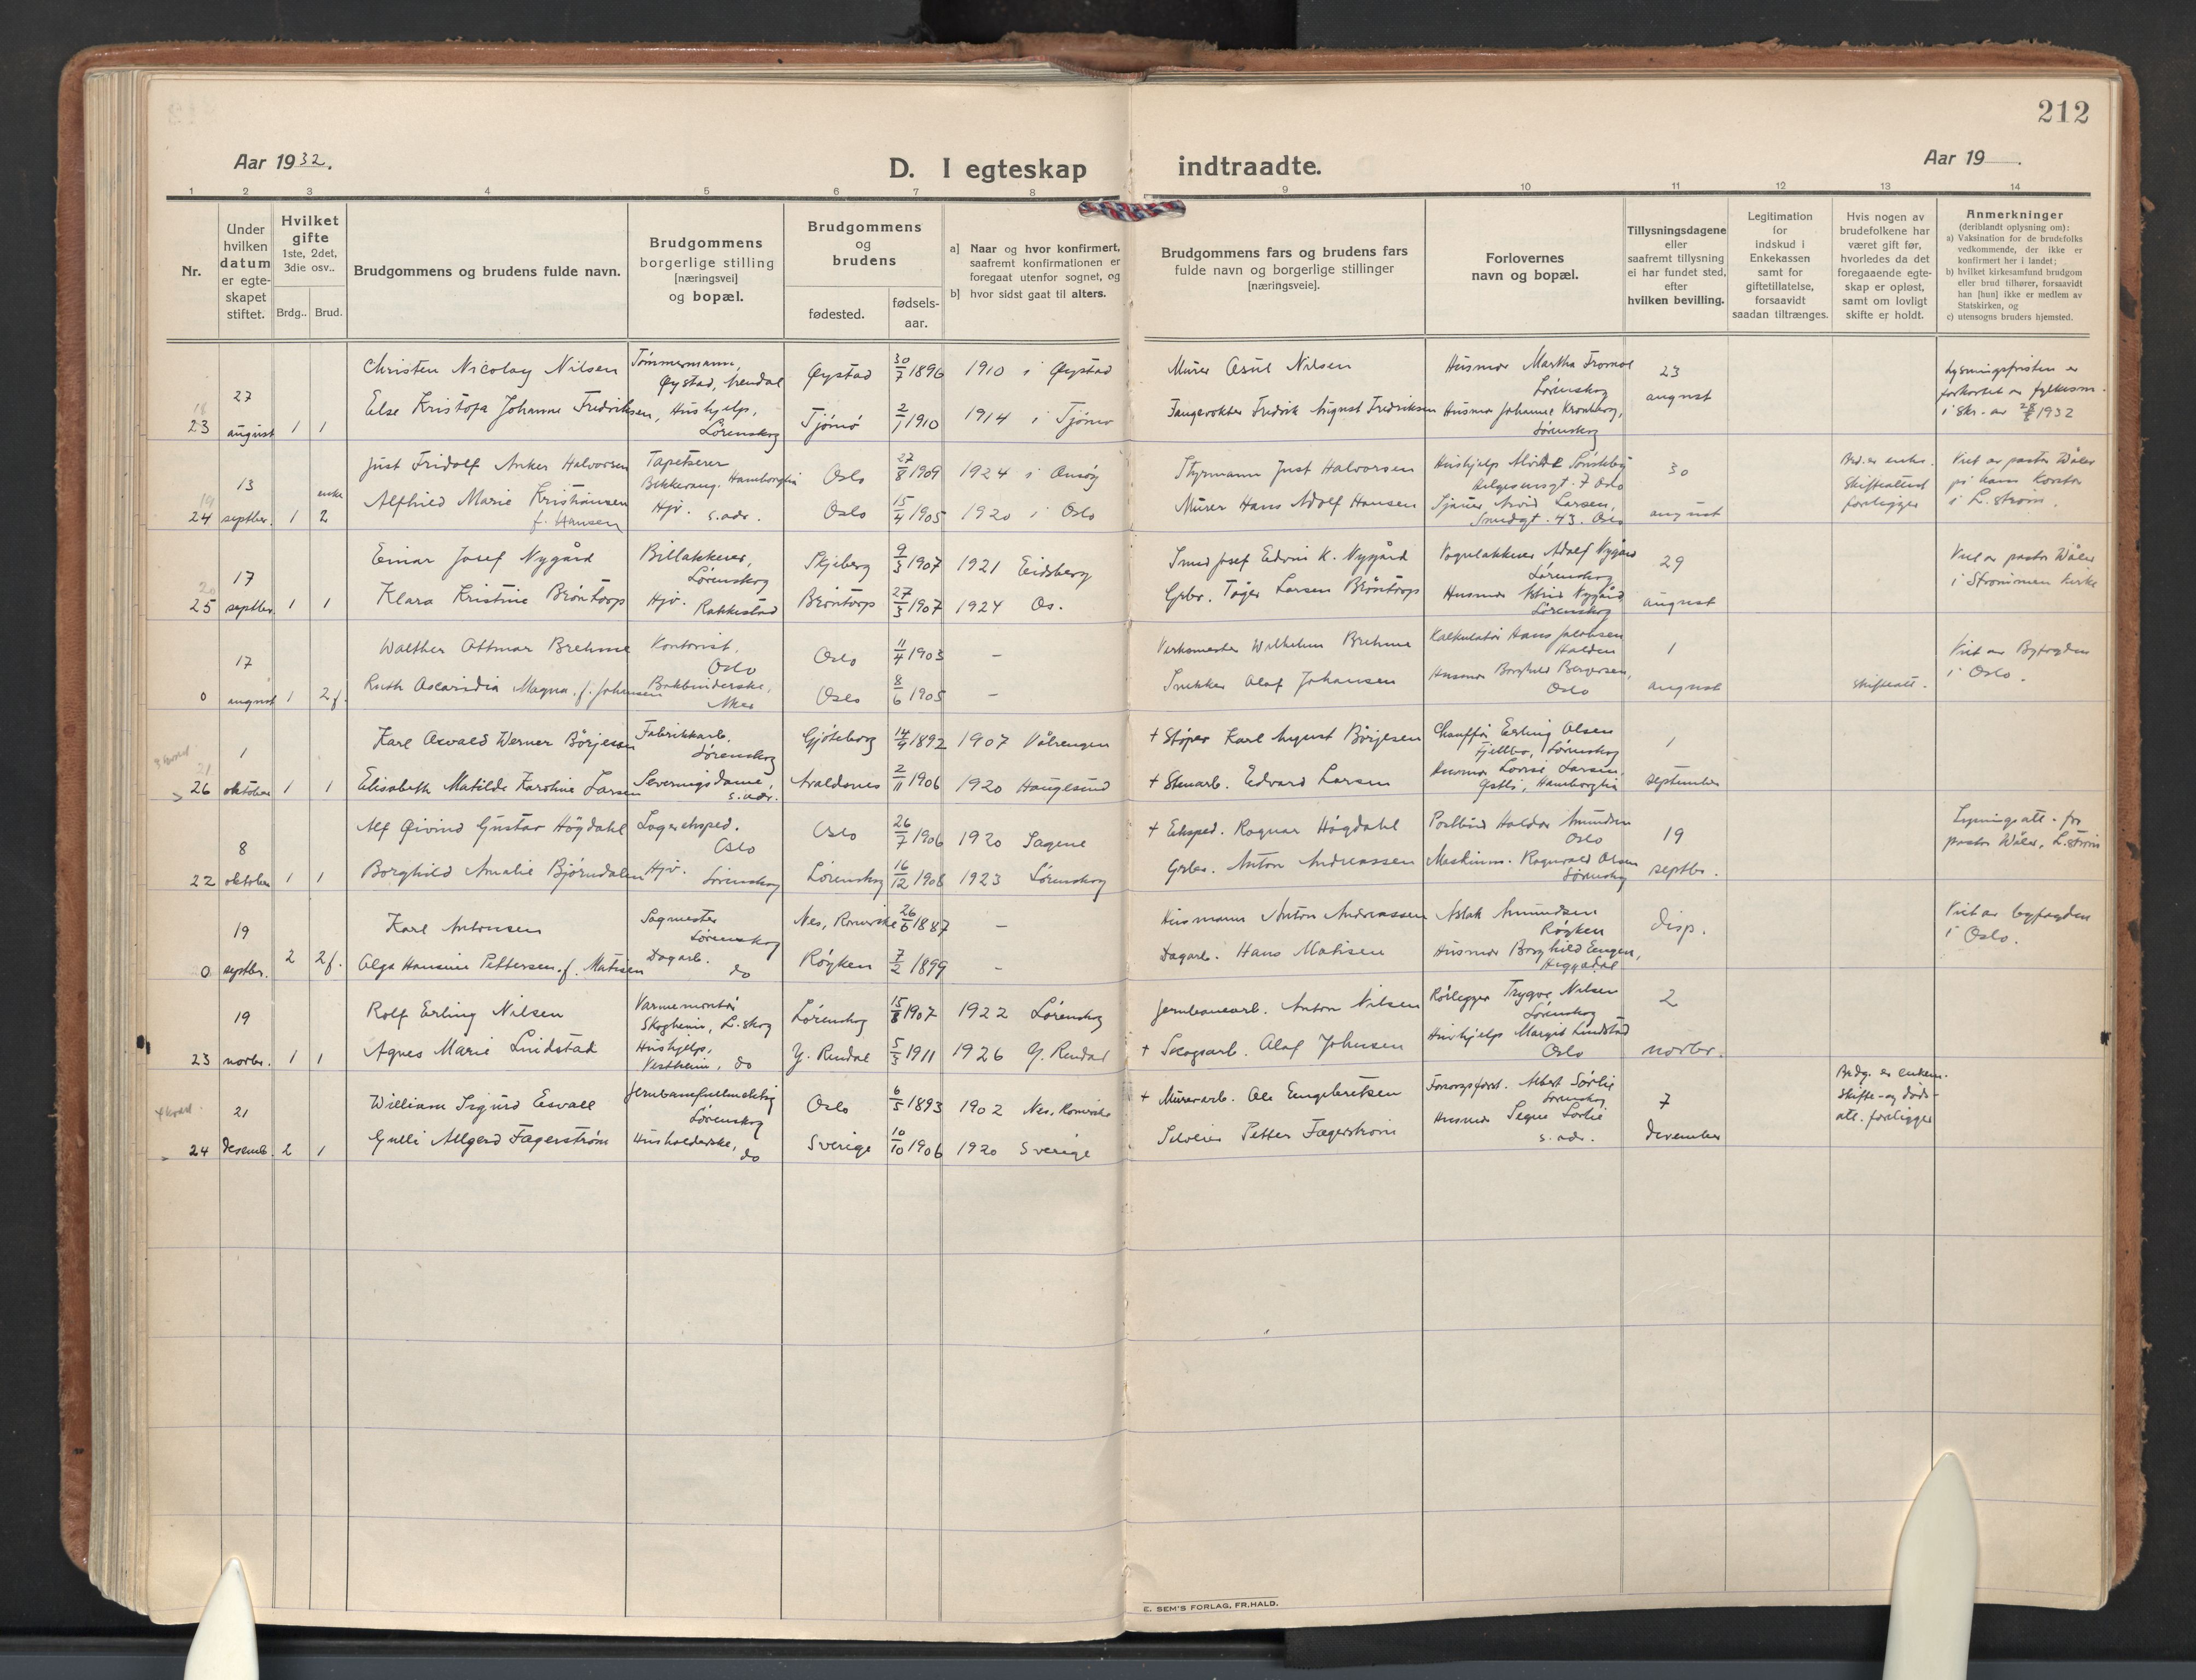 212
Aar 1932.
D. I egteskap indtraadte.
Aar 19
1 2 3 4 5 6 7 8 9 10 11 12 13 14
Nr.
Under hvilken datum er egteskapet stiftet.
Hvilket gifte 1ste, 2det, 3die osv..
Brdg.. Brud.
Brudgommens og brudens fulde navn.
Brudgommens borgerlige stilling [næringsvei] og bopæl.
Brudgommens og brudens
fødested.
fødsels-aar.
a] Naar og hvor konfirmert, saafremt konfirmationen er foregaat utenfor sognet, og
b] hvor sidst gaat til alters.
Brudgommens fars og brudens fars fulde navn og borgerlige stillinger [næringsveie].
Forlovernes navn og bopæl.
Tillysningsdagene eller saafremt tillysning ei har fundet sted, efter hvilken bevilling.
Legitimation for indskud i Enkekassen samt for giftetillatelse, forsaavidt saadan tiltrænges.
Hvis nogen av brudefolkene har været gift før, hvorledes da det foregaaende egteskap er opløst, samt om lovligt skifte er holdt.
Anmerkninger (deriblandt oplysning om):
a) Vaksination for de brudefolks vedkommende, der ikke er konfirmert her i landet;
b) hvilket kirkesamfund brudgom eller brud tilhører, forsaavidt han [hun] ikke er medlem av Statskirken, og
c) utensogns bruders hjemsted.
27 Christen Nicolay Nilsen Tømmermann, Øystad, Arendal Øystad 30/7 1896 1910 i Øystad Murer Asul Nilsen Husmor Martha Lørenskog 23
18
23 august 1 1 Else Kristofa Johanne Fredriksen, Hushjelp, Lørenskog Tjømø 2/1 1910 1914 i Tjømø Fangevokter Fredrik August Fredriksen Husmor Johanne Kronberg, Lørenskog august
Lysningsfristen er forkortet av fylkesm. i skr. av 1932
13 Just Fridolf Anker Halvorsen Tapetserer Oslo 27/8 1909 1924 i Styrmann Just Halvorsen Hushjelp 7 Oslo 30
19
24 septbr. 1 enke 2 Alfhild Marie Kristiansen f. Hansen Hjv. s. adr. Oslo 15/4 1905 1920 i Oslo Murer Hans Adolf Hansen Arvid Larsen, Smedgt. 43. Oslo august
Brd. er enke. Skifteattest foreligger
Viet av pastor Wåler på hans kontor i L. strøm.
17 Einar Josef Nygård Billakkerer, Lørenskog Skjeberg 9/3 1907 1921 Eidsberg Smed Josef Edvin K. Nygård Vognlakkerer Adolf Nygård Lørenskog 29
20
25 septbr. 1 1 Klara Kristine Brøntorp Hjv. Rakkestad Brøntorp 27/3 1907 1924 Os. Grbr. Larsen Brøntorp Husmor Astrid Nygård Lørenskog august
Viet av pastor Wåler i Strømmen kirke
17 Walther Ottmar Brehme Kontorist. Oslo Oslo 11/4 1903 – Verksmester Wilhelm Brehme Kalkulatør Hans Jacobsen Halden 1
0 august 1 2 f. Ruth Magna f. Johansen Bokbinderske, Aker Oslo 8/6 1905 – Olaf Johansen Husmor Borghild Bergersen, Oslo august skifteatt.
Viet av Byfogden i Oslo.
1 Karl Osvald Werner Börjeson Fabrikkarb. Lørenskog Gjøteborg 14/9 1892 1907 Vålrengen + Støper Karl August Börjesen Chauffør Erling Olsen Fjellbo, Lørenskog 1
21
26 oktober 1 1 Elisabeth Matilde Karoline Larsen Serveringsdame, s. adr. Avaldsnes 2/11 1906 1920 Haugesund + Stenarb. Edvard Larsen Husmor Lovise Larsen, september
8 Alf Øivind Gustav Högdahl Lagereksped. Oslo Oslo 26/7 1906 1920 Sagene + Eksped. Ragnar Högdahl Postbud Haldor Amundsen Oslo 19
22 oktober 1 1 Borghild Amalie Bjørndalen Hjv. Lørenskog Lørenskog 16/12 1908 1923 Lørenskog Grbr. Anton Andreassen Maskinm. Ragnvald Olsen Lørenskog septbr.
Lysningsatt. fra pastor Wåler, L. strøm
19 Karl Antonsen Sagmester Lørenskog Nes, Romerike 26/6 1887 – Husmann Anton Andreassen Aslak Amundsen Røyken disp.
0 septbr. 2 2 f. Olga Hansine Pettersen f. Matisen Dagarb. do Røyken 7/2 1899 – Dagarb. Hans Matisen Husmor Borghild Engen,
Viet av byfogden i Oslo.
19 Rolf Erling Nilsen Varmemontør Skogheim, L. skog Lørenskog 15/8 1907 1922 Lørenskog Jernbanearb. Anton Nilsen Rørlegger Trygve Nilsen Lørenskog 2
23 novbr. 1 1 Agnes Marie Lindstad Hushjelp, Vestheim, do Y. Rendal 5/3 1911 1926 Y. Rendal + Skogsarb. Olaf Johnsen Hushjelp Margit Lindstad Oslo novbr.
21 William Sigurd Esvall Jernbanefullmektig Lørenskog Oslo 6/5 1893 1902 Nes, Romerike + Murerarb. Ole Engebretsen Forsorgsforst. Albert Sørlie Lørenskog 7
24 desemb. 2 1 Gulli Allgerd Fagerström Husholderske, do Sverige 10/10 1906 1920 Sverige Petter Fagerstrøm Husmor Signe Sørlie s. adr. desember
Brdg. er enkem. Skifte- og dødsatt. foreligger
E. SEM'S FORLAG, FR.HALD.